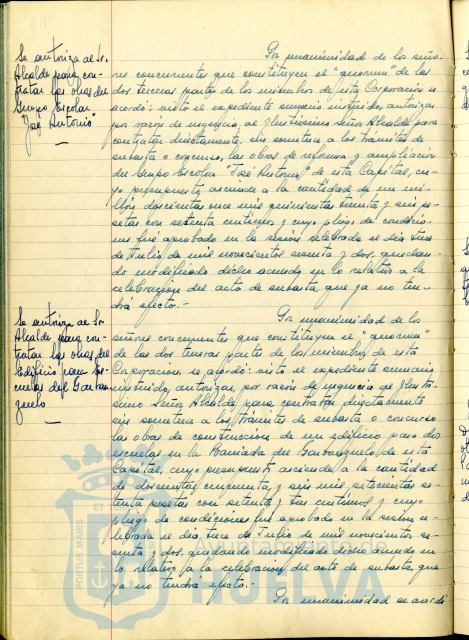 Se autoriza al Sr.
Alcalde para con-
tratar las obras del
Grupo Escolar
"José Antonio"
Por unanimidad de los seño-
res concurrentes que constituyen el "quorum" de las
dos terceras partes de los miembros de esta Corporación se
acordó: visto el expediente sumario instruido, autorizar
por razón de urgencia al Ilustrísimo Señor Alcalde para
contratar directamente, sin someterse a los trámites de
subasta o concurso, las obras de reforma y ampliación
del Grupo Escolar "José Antonio" de esta Capital, cu-
yo presupuesto asciende a la cantidad de un mi-
llón doscientas once mil quinientas treinta y seis pe-
setas con setenta céntimos y cuyo pliego de condicio-
nes fué aprobado en la sesión celebrada el día trece
de Julio de mil novecientos sesenta y dos, quedan-
do modificado dicho acuerdo en lo relativo a la
celebración del acto de subasta que ya no ten-
drá efecto.-
Se autoriza al Sr.
Alcalde para con-
tratar las obras del
Edificio para Es-
cuelas del Garban-
zuelo
Por unanimidad de los
señores concurrentes que constituyen el "quorum"
de las dos terceras partes de los miembros de esta
Corporación se acordó: visto el expediente sumario
instruido, autorizar, por razón de urgencia al Ilustrí-
simo Señor Alcalde para contratar directamente
sin someterse a los trámites de subasta o concurso
las obras de construcción de un edificio para dos
escuelas en la Barriada del Garbanzuelo de esta
Capital, cuyo presupuesto asciende a la cantidad
de doscientas cincuenta y seis mil setecientas se-
tenta pesetas con setenta y tres céntimos y cuyo
pliego de condiciones fué aprobado en la sesión ce-
lebrada el día trece de Julio de mil novecientos se-
senta y dos, quedando modificado dicho acuerdo en
lo relativo a la celebración del acto de subasta que
ya no tendrá efecto.-
Por unanimidad se acordó
PORTUS MARIS
Ayuntamiento de
HUELVA